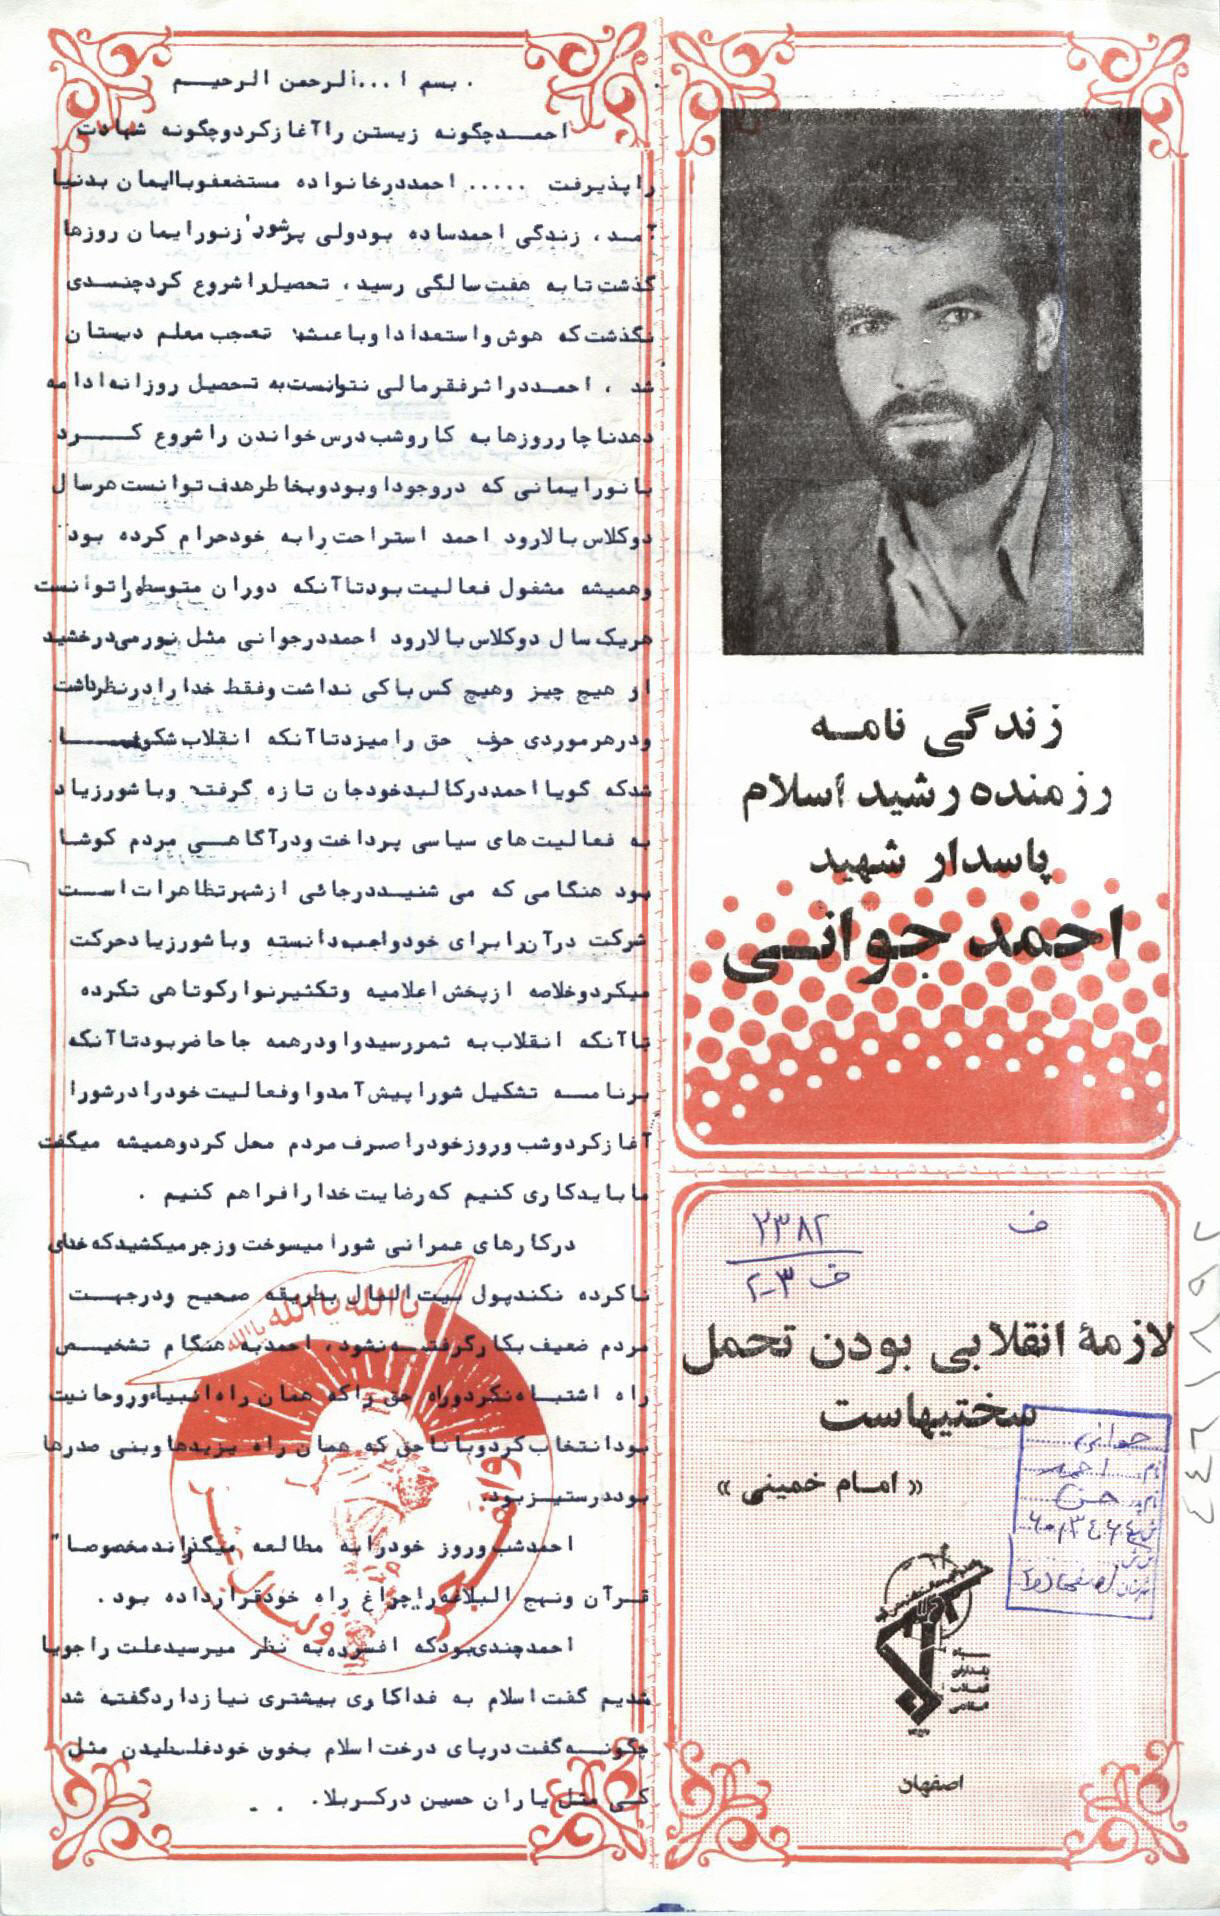 زندگی نامه
رزمنده رشید اسلام
پاسدار شهید
احمد جوانی
بسم ا...الرحمن الرحیم
احمد چگونه زیستن را آغاز کرد و چگونه شهادت
را پذیرفت ..... احمد در خانواده مستضعف و با ایمان بدنیا
آمد ، زندگی احمد ساده بود ولی پر شور از نور ایمان روزها
گذشت تا به هفت سالگی رسید ، تحصیل را شروع کرد چندی
نگذشت که هوش و استعداد او باعث تعجب معلم دبستان
شد ، احمد در اثر فقر مالی نتوانست به تحصیل روزانه ادامه
دهد ناچار روزها به کار و شب درس خواندن را شروع کرد
با نور ایمانی که در وجود او بود و بخاطر هدف توانست هر سال
دو کلاس بالا رود احمد استراحت را به خود حرام کرده بود
و همیشه مشغول فعالیت بود تا آنکه دوران متوسطه را توانست
هر یک سال دو کلاس بالا رود احمد در جوانی مثل نور می درخشید
از هیچ چیز و هیچ کس باکی نداشت و فقط خدا را در نظر داشت
و در هر موردی حرف حق را میزد تا آنکه انقلاب شکوفا
شد که گویا احمد در کالبد خود جان تازه گرفته و با شور زیاد
به فعالیت های سیاسی پرداخت و در آگاهی مردم کوشا
بود هنگامی که می شنید در جائی از شهر تظاهرات است
شرکت در آن را برای خود واجب دانسته و با شور زیاد حرکت
میکرد و خلاصه از پخش اعلامیه و تکثیر نوار کوتاهی نکرده
تا آنکه انقلاب به ثمر رسید او در همه جا حاضر بود تا آنکه
برنامه تشکیل شورا پیش آمد و او فعالیت خود را در شورا
آغاز کرد و شب و روز خود را صرف مردم محل کرد و همیشه میگفت
ما باید کاری کنیم که رضایت خدا را فراهم کنیم .
در کارهای عمرانی شورا میسوخت و زجر میکشید که خدای
ناکرده نکند پول بیت المال بطریقه صحیح و در جهت
مردم ضعیف بکار گرفته نشود ، احمد به هنگام تشخیص
راه اشتباه نکرد و راه حق را که همان راه انبیاء و روحانیت
بود انتخاب کرد و با ناحق که همان راه یزیدها و بنی صدرها
بود در ستیز بود .
احمد شب و روز خود را به مطالعه میگذراند مخصوصا"
قرآن و نهج البلاغه را چراغ راه خود قرار داده بود .
احمد چندی بود که افسرده به نظر میرسید علت را جویا
شدیم گفت اسلام به فداکاری بیشتری نیاز دارد گفته شد
چگونه گفت در پای درخت اسلام بخون خود غلطیدن مثل
کی مثل یاران حسین در کربلا .
یا الله یا الله یا الله
والفجر
ولیال عشر
شهید شهید شهید شهید شهید شهید شهید
ف
۲۳۸۲
ف ۳-۲
لازمهٔ انقلابی بودن تحمل
سختیهاست
«امام خمینی»
جوانی
نام احمد
نام پدر حسن
اصفهان